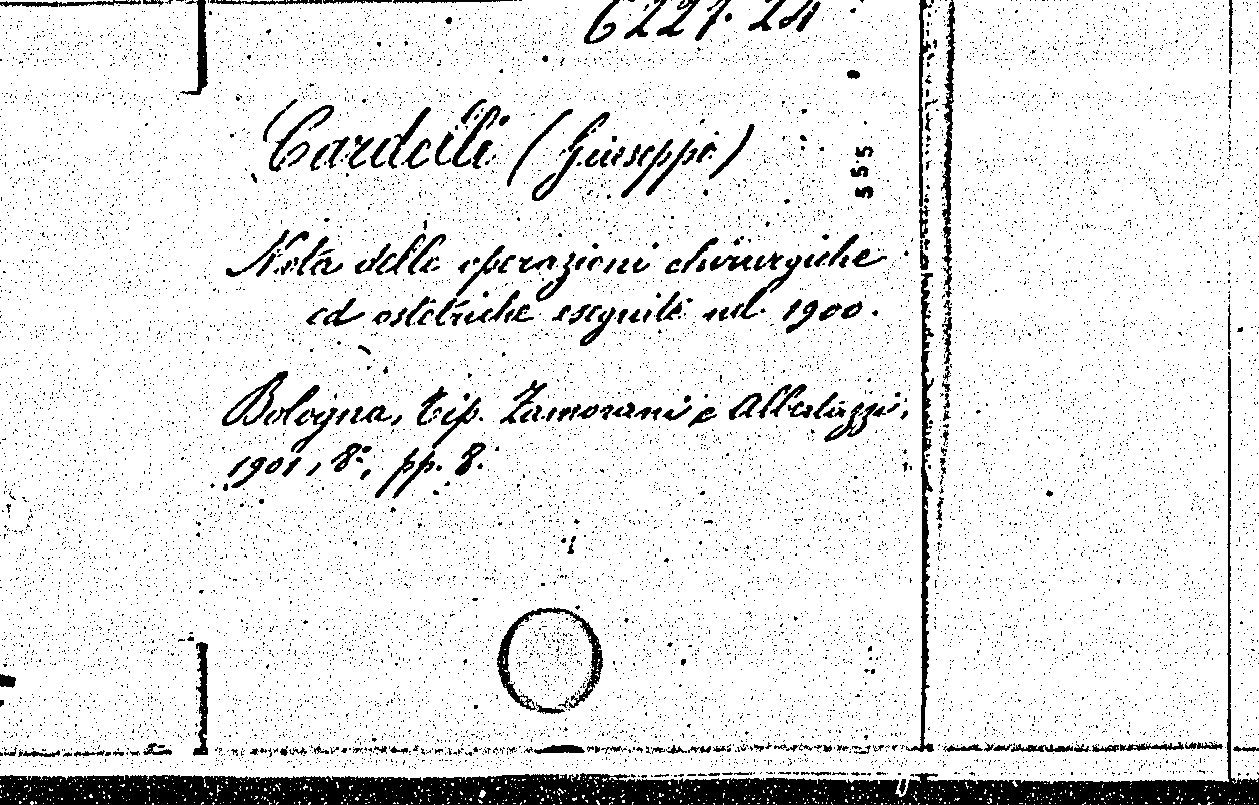 6227. 24
Cardelli (Giuseppe)
555
Nota delle operazioni chirurgiche
ed ostetriche eseguite nel 1900.
Bologna, tip. Zamorani e Albertazzi,
1901, 8º, pp. 8.